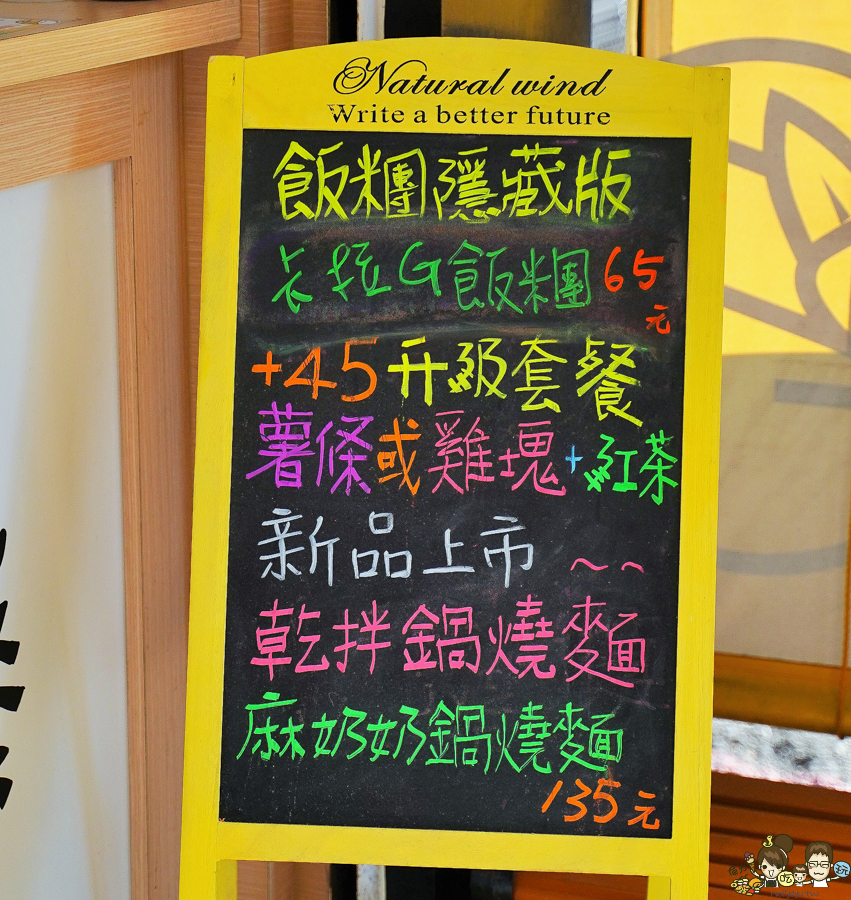 Natural wind
Write a better future
飯糰隱藏版
卡拉G飯糰 65
元
+45升級套餐
薯條或雞塊+紅茶
新品上市~~
乾拌鍋燒麵
麻奶奶鍋燒麵
135元